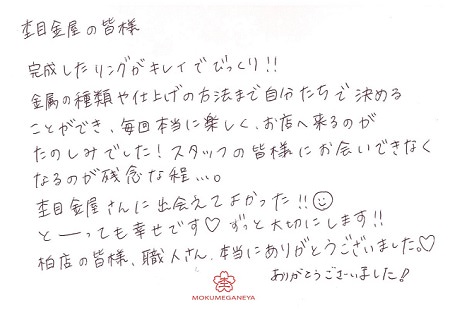 杢目金屋の皆様
完成したリングがキレイでびっくり!!
金属の種類や仕上げの方法まで自分たちで決める
ことができ、毎回本当に楽しく、お店へ来るのが
たのしみでした!スタッフの皆様にお会いできなく
なるのが残念な程…。
杢目金屋さんに出会えてよかった!!☺
とーっても幸せです♡ずっと大切にします!!
柏店の皆様、職人さん、本当にありがとうございました。♡
ありがとうございました!
杢
MOKUMEGANEYA